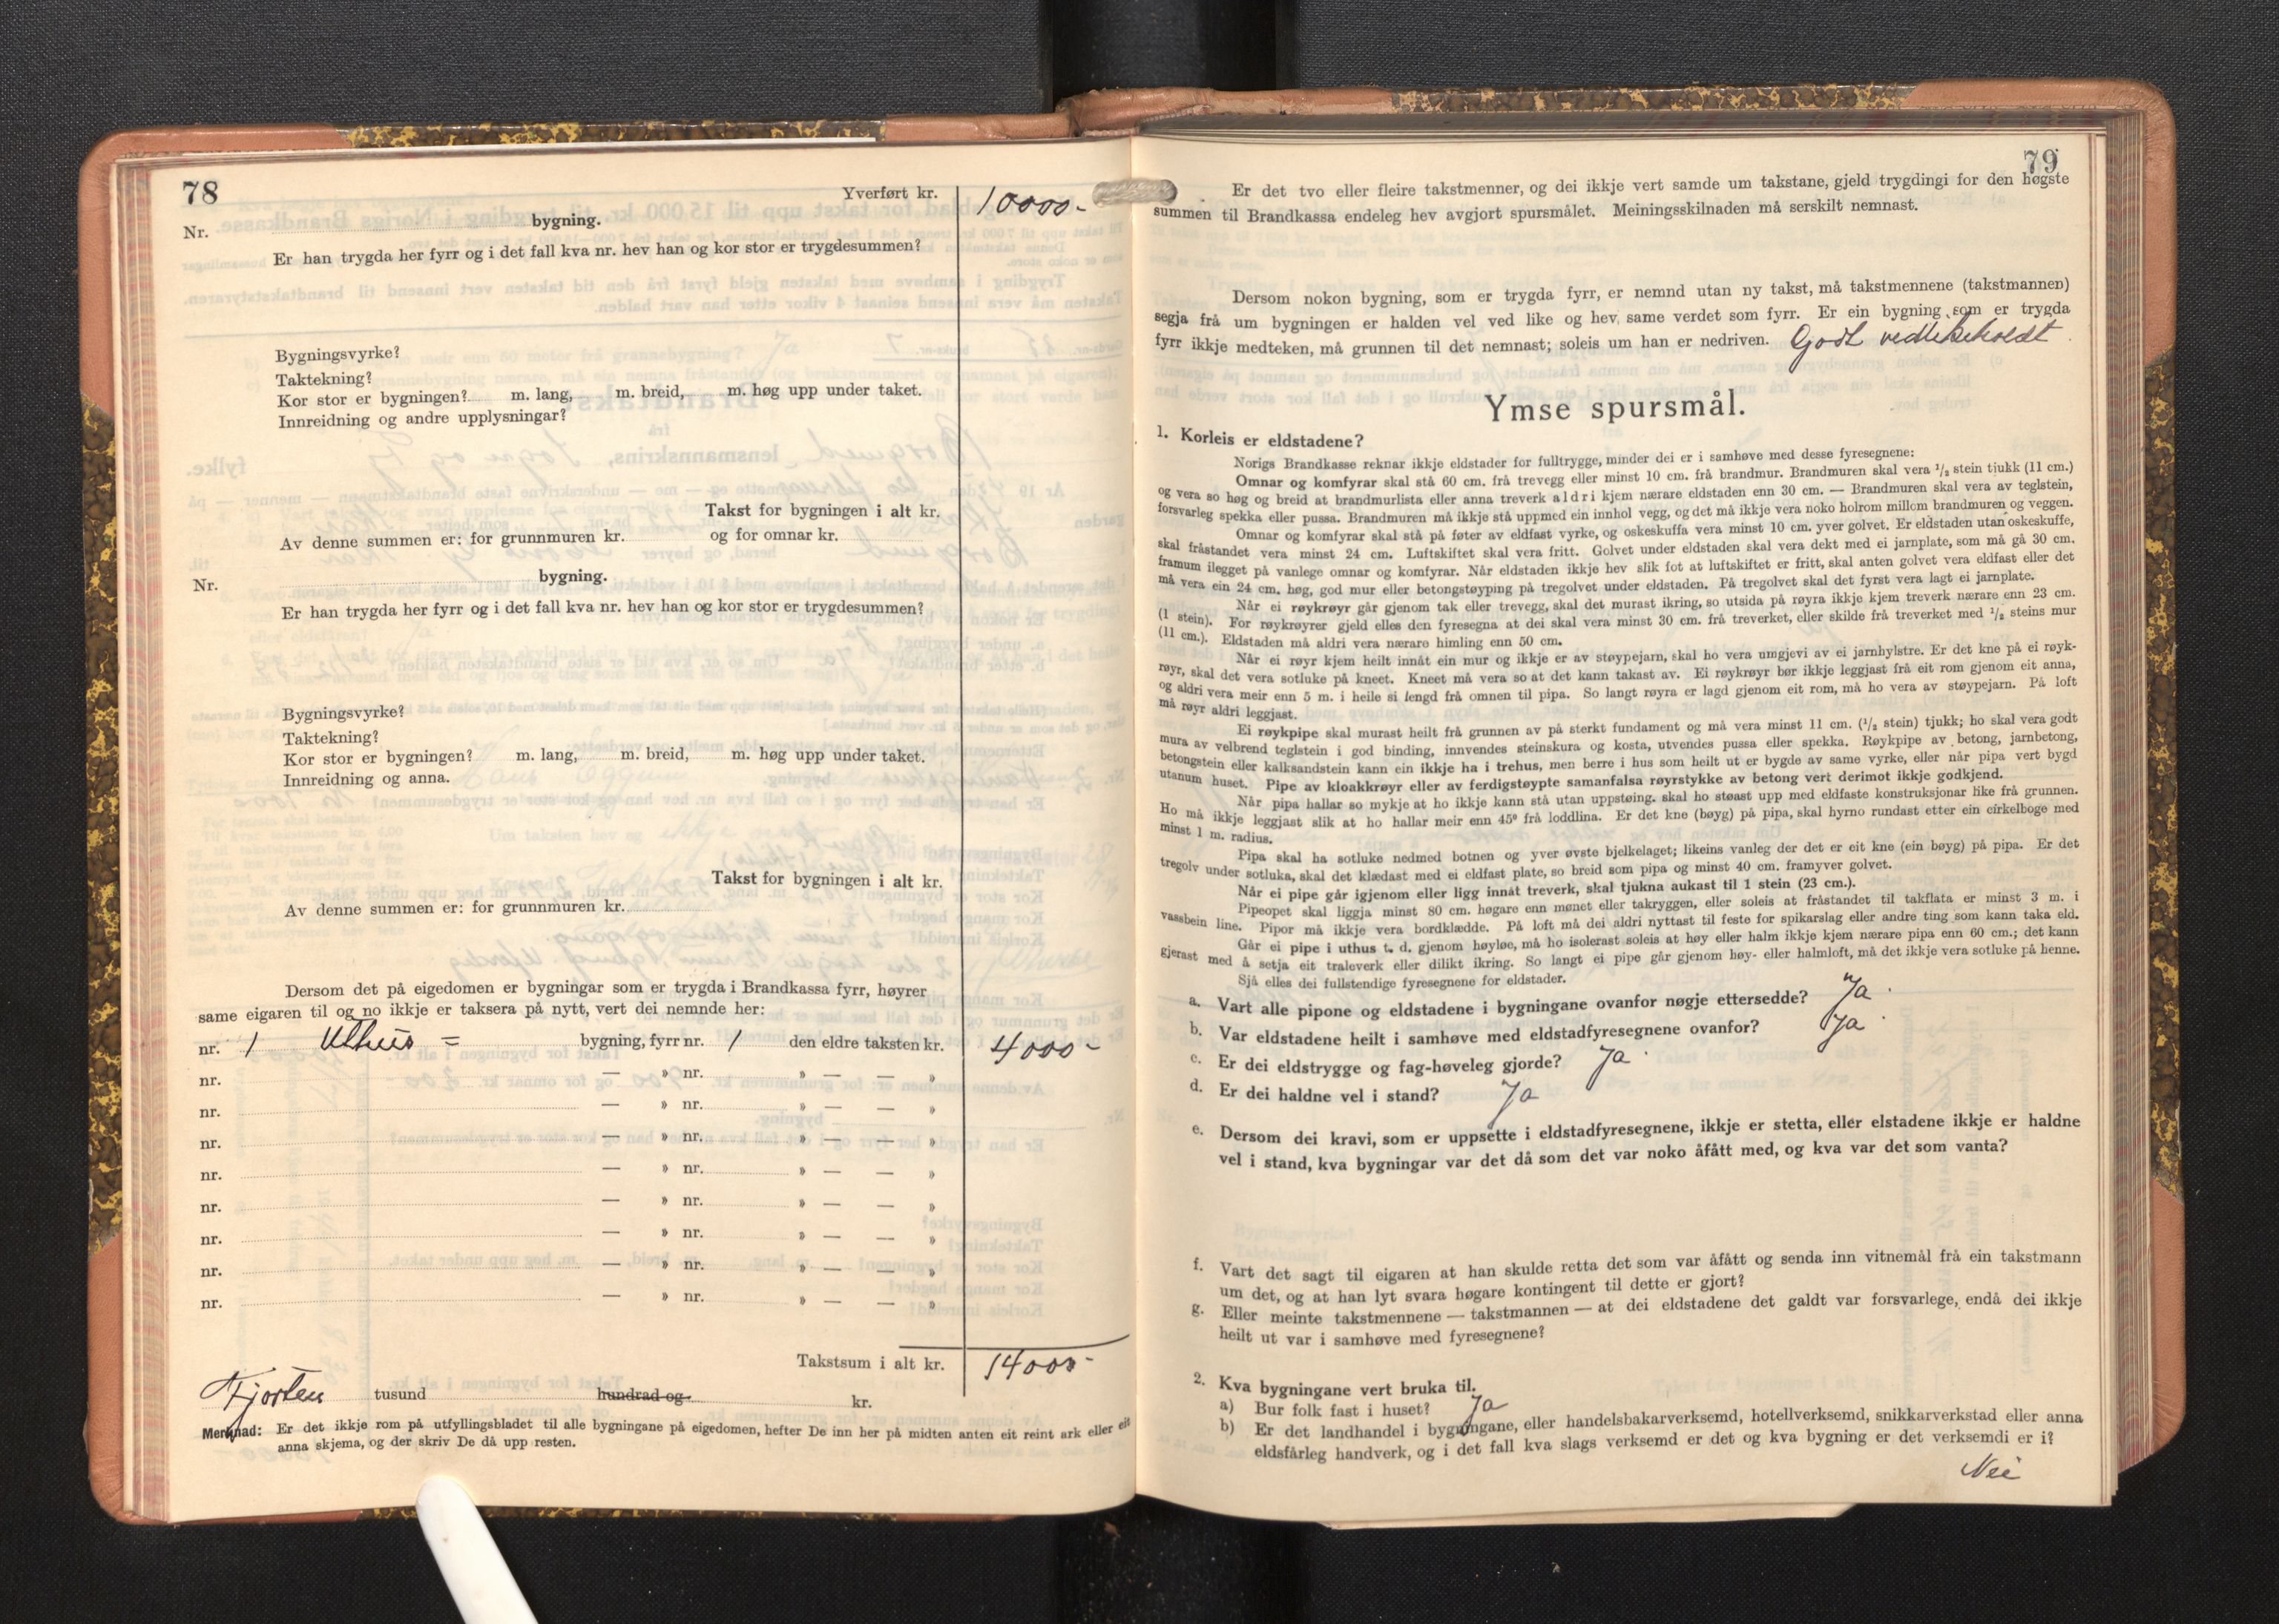 78
Yverført kr. 10000-
Nr. bygning.
Er han trygda her fyrr og i det fall kva nr. hev han og kor stor er trygdesummen?
Bygningsvyrke?
Taktekning?
Kor stor er bygningen? m. lang, m. breid, m. høg upp under taket.
Innreidning og andre upplysningar?
Takst for bygningen i alt kr.
Av denne summen er: for grunnmuren kr. og for omnar kr.
Nr. bygning.
Er han trygda her fyrr og i det fall kva nr. hev han og kor stor er trygdesummen?
Bygningsvyrke?
Taktekning?
Kor stor er bygningen? m. lang, m. breid, m. høg upp under taket.
Innreidning og anna.
Takst for bygningen i alt kr.
Av denne summen er: for grunnmuren kr.
Dersom det på eigedomen er bygningar som er trygda i Brandkassa fyrr, høyrer
same eigaren til og no ikkje er taksera på nytt, vert dei nemnde her:
nr. 1 Uthus = bygning, fyrr nr. 1 den eldre taksten kr. 4000-
nr. — » nr. » — — »
nr. — » nr. » — — »
nr. — » nr. » — — »
nr. — » nr. » — — »
nr. — » nr. » — — »
nr. — » nr. » — — »
nr. — » nr. » — — »
nr. — » nr. » — — »
Takstsum i alt kr. 14000-
Fjorten tusund hundrad og kr.
Merknad: Er det ikkje rom på utfyllingsbladet til alle bygningane på eigedomen, hefter De inn her på midten anten eit reint ark eller eit
anna skjema, og der skriv De då upp resten.
79
Er det tvo eller fleire takstmenner, og dei ikkje vert samde um takstane, gjeld trygdingi for den høgste
summen til Brandkassa endeleg hev avgjort spursmålet. Meiningsskilnaden må serskilt nemnast.
Dersom nokon bygning, som er trygda fyrr, er nemnd utan ny takst, må takstmennene (takstmannen)
segja frå um bygningen er halden vel ved like og hev same verdet som fyrr. Er ein bygning som er trygda
fyrr ikkje medteken, må grunnen til det nemnast; soleis um han er nedriven. Godt vedlikeholdt
Ymse spursmål.
1. Korleis er eldstadene?
Norigs Brandkasse reknar ikkje eldstader for fulltrygge, minder dei er i samhøve med desse fyresegnene:
Omnar og komfyrar skal stå 60 cm. frå trevegg eller minst 10 cm. frå brandmur. Brandmuren skal vera 1/2 stein tjukk (11 cm.)
og vera so høg og breid at brandmurlista eller anna treverk aldri kjem nærare eldstaden enn 30 cm. — Brandmuren skal vera av teglstein,
forsvarleg spekka eller pussa. Brandmuren må ikkje stå uppmed ein innhol vegg, og det må ikkje vera noko holrom millom brandmuren og veggen.
Omnar og komfyrar skal stå på føter av eldfast vyrke, og oskeskuffa vera minst 10 cm. yver golvet. Er eldstaden utan oskeskuffe,
skal fråstandet vera minst 24 cm. Luftskiftet skal vera fritt. Golvet under eldstaden skal vera dekt med ei jarnplate, som må gå 30 cm.
framum ilegget på vanlege omnar og komfyrar. Når eldstaden ikkje hev slik fot at luftskiftet er fritt, skal anten golvet vera eldfast eller det
må vera ein 24 cm. høg, god mur eller betongstøyping på tregolvet under eldstaden. På tregolvet skal det fyrst vera lagt ei jarnplate.
Når ei røykrøyr går gjenom tak eller trevegg, skal det murast ikring, so utsida på røyra ikkje kjem treverk nærare enn 23 cm.
(1 stein). For røykrøyrer gjeld elles den fyresegna at dei skal vera minst 30 cm. frå treverket, eller skilde frå treverket med 1/2 steins mur
(11 cm.). Eldstaden må aldri vera nærare himling enn 50 cm.
Når ei røyr kjem heilt innåt ein mur og ikkje er av støypejarn, skal ho vera umgjevi av ei jarnhylstre. Er det kne på ei røyk-
røyr, skal det vera sotluke på kneet. Kneet må vera so at det kann takast av. Ei røykrøyr bør ikkje leggjast frå eit rom gjenom eit anna,
og aldri vera meir enn 5 m. i heile si lengd frå omnen til pipa. So langt røyra er lagd gjenom eit rom, må ho vera av støypejarn. På loft
må røyr aldri leggjast.
Ei røykpipe skal murast heilt frå grunnen av på sterkt fundament og må vera minst 11 cm. (1/2 stein) tjukk; ho skal vera godt
mura av velbrend teglstein i god binding, innvendes steinskura og kosta, utvendes pussa eller spekka. Røykpipe av betong, jarnbetong,
betongstein eller kalksandstein kann ein ikkje ha i trehus, men berre i hus som heilt ut er bygde av same vyrke, eller når pipa vert bygd
utanum huset. Pipe av kloakkrøyr eller av ferdigstøypte samanfalsa røyrstykke av betong vert derimot ikkje godkjend.
Når pipa hallar so mykje at ho ikkje kann stå utan uppstøing, skal ho støast upp med eldfaste konstruksjonar like frå grunnen.
Ho må ikkje leggjast slik at ho hallar meir enn 45° frå loddlina. Er det kne (bøyg) på pipa, skal hyrno rundast etter ein cirkelboge med
minst 1 m. radius.
Pipa skal ha sotluke nedmed botnen og yver øvste bjelkelaget; likeins vanleg der det er eit kne (ein bøyg) på pipa. Er det
tregolv under sotluka, skal det klædast med ei eldfast plate, so breid som pipa og minst 40 cm. framyver golvet.
Når ei pipe går igjenom eller ligg innåt treverk, skal tjukna aukast til 1 stein (23 cm.).
Pipeopet skal liggja minst 80 cm. høgare enn mønet eller takryggen, eller soleis at fråstandet til takflata er minst 3 m. i
vassbein line. Pipor må ikkje vera bordklædde. På loft må dei aldri nyttast til feste for spikarslag eller andre ting som kann taka eld.
Går ei pipe i uthus t. d. gjenom høyløe, må ho isolerast soleis at høy eller halm ikkje kjem nærare pipa enn 60 cm.; det kann
gjerast med å setja eit traleverk eller dilikt ikring. So langt ei pipe går gjenom høy- eller halmloft, må det ikkje vera sotluke på henne.
Sjå elles dei fullstendige fyresegnene for eldstader.
a. Vart alle pipone og eldstadene i bygningane ovanfor nøgje ettersedde? Ja
b. Var eldstadene heilt i samhøve med eldstadfyresegnene ovanfor? Ja
c. Er dei eldstrygge og fag-høveleg gjorde? Ja
d. Er dei haldne vel i stand? Ja
e. Dersom dei kravi, som er uppsette i eldstadfyresegnene, ikkje er stetta, eller elstadene ikkje er haldne
vel i stand, kva bygningar var det då som det var noko åfått med, og kva var det som vanta?
f. Vart det sagt til eigaren at han skulde retta det som var åfått og senda inn vitnemål frå ein takstmann
um det, og at han lyt svara høgare kontingent til dette er gjort?
g. Eller meinte takstmennene — takstmannen — at dei eldstadene det galdt var forsvarlege, endå dei ikkje
heilt ut var i samhøve med fyresegnene?
2. Kva bygningane vert bruka til.
a) Bur folk fast i huset? Ja
b) Er det landhandel i bygningane, eller handelsbakarverksemd, hotellverksemd, snikkarverkstad eller anna
eldsfårleg handverk, og i det fall kva slags verksemd er det og kva bygning er det verksemdi er i?
Nei